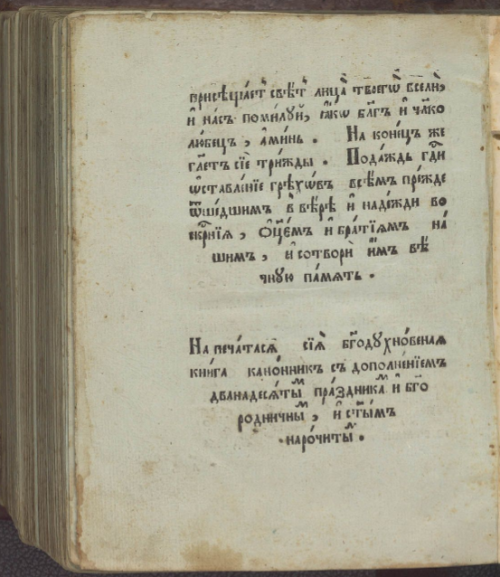 присѣщаетъ свѣтъ лица̀ твоегѡ̀ вселѝ,
и҆ насъ поми́луй, ꙗ҆́кѡ бл҃гъ и҆ чл҃ко
любецъ, а҆ми́нь. На коне́цъ же
гл҃етъ сїѐ три́жды. Пода́ждь гд҇и
ѡ҆ставле́нїе грѣхѡ́въ всѣ́мъ пре́жде
ѿше́дшимъ в̾ вѣ́рѣ и҆ наде́жди во
скр҇нїѧ, ѻ҆ц҃е́мъ и҆ бра́тїѧмъ на́
шимъ, и҆ сотворѝ и҆̀мъ вѣ́
чную па́мѧть.
На печа́тасѧ сїѧ̀ бг҃одухнове́наѧ
кни́га кано́нникъ съ дополне́нїемъ
дванадесѧ́тыⷨ пра́здникаⷨ и҆ бг҃о
роди́чныⷨ, и҆ ст҃ы́мъ
наро́читыⷨ.